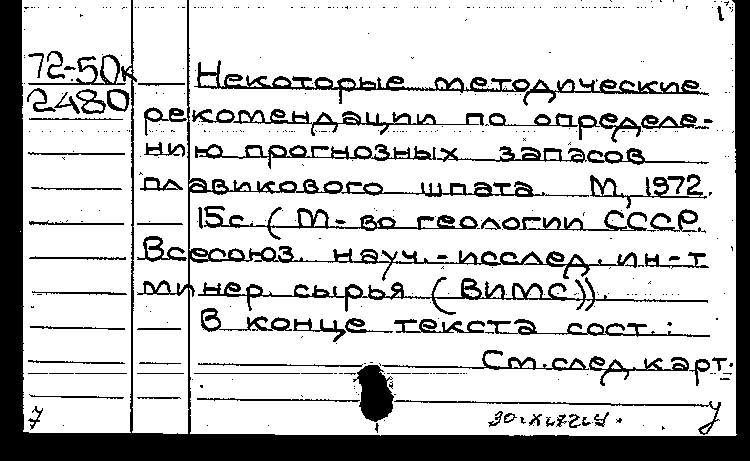 1
72-50к
2480
Некоторые методические
рекомендации по определе-
нию прогнозных запасов
плавикового шпата. М., 1972.
15с. (М-во геологии СССР.
Всесоюз. науч.-исслед. ин-т
минер. сырья (ВИМС)).
В конце текста сост.:
См. след. карт.
7